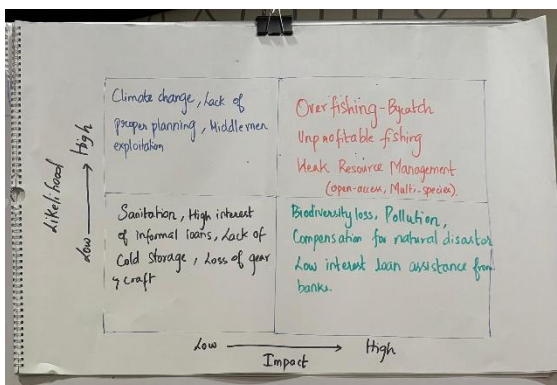 Climate change, Lack of
proper planning, Middlemen
exploitation
Overfishing-Bycatch
Unprofitable fishing
Weak Resource Management
(open-access, Multi-species)
Sanitation, High interest
of informal loans, Lack of
Cold Storage, Loss of gear
& craft
Biodiversity loss, Pollution,
Compensation for natural disaster
Low interest loan assistance from
banks.
Likelihood
Low High
Low High
Impact